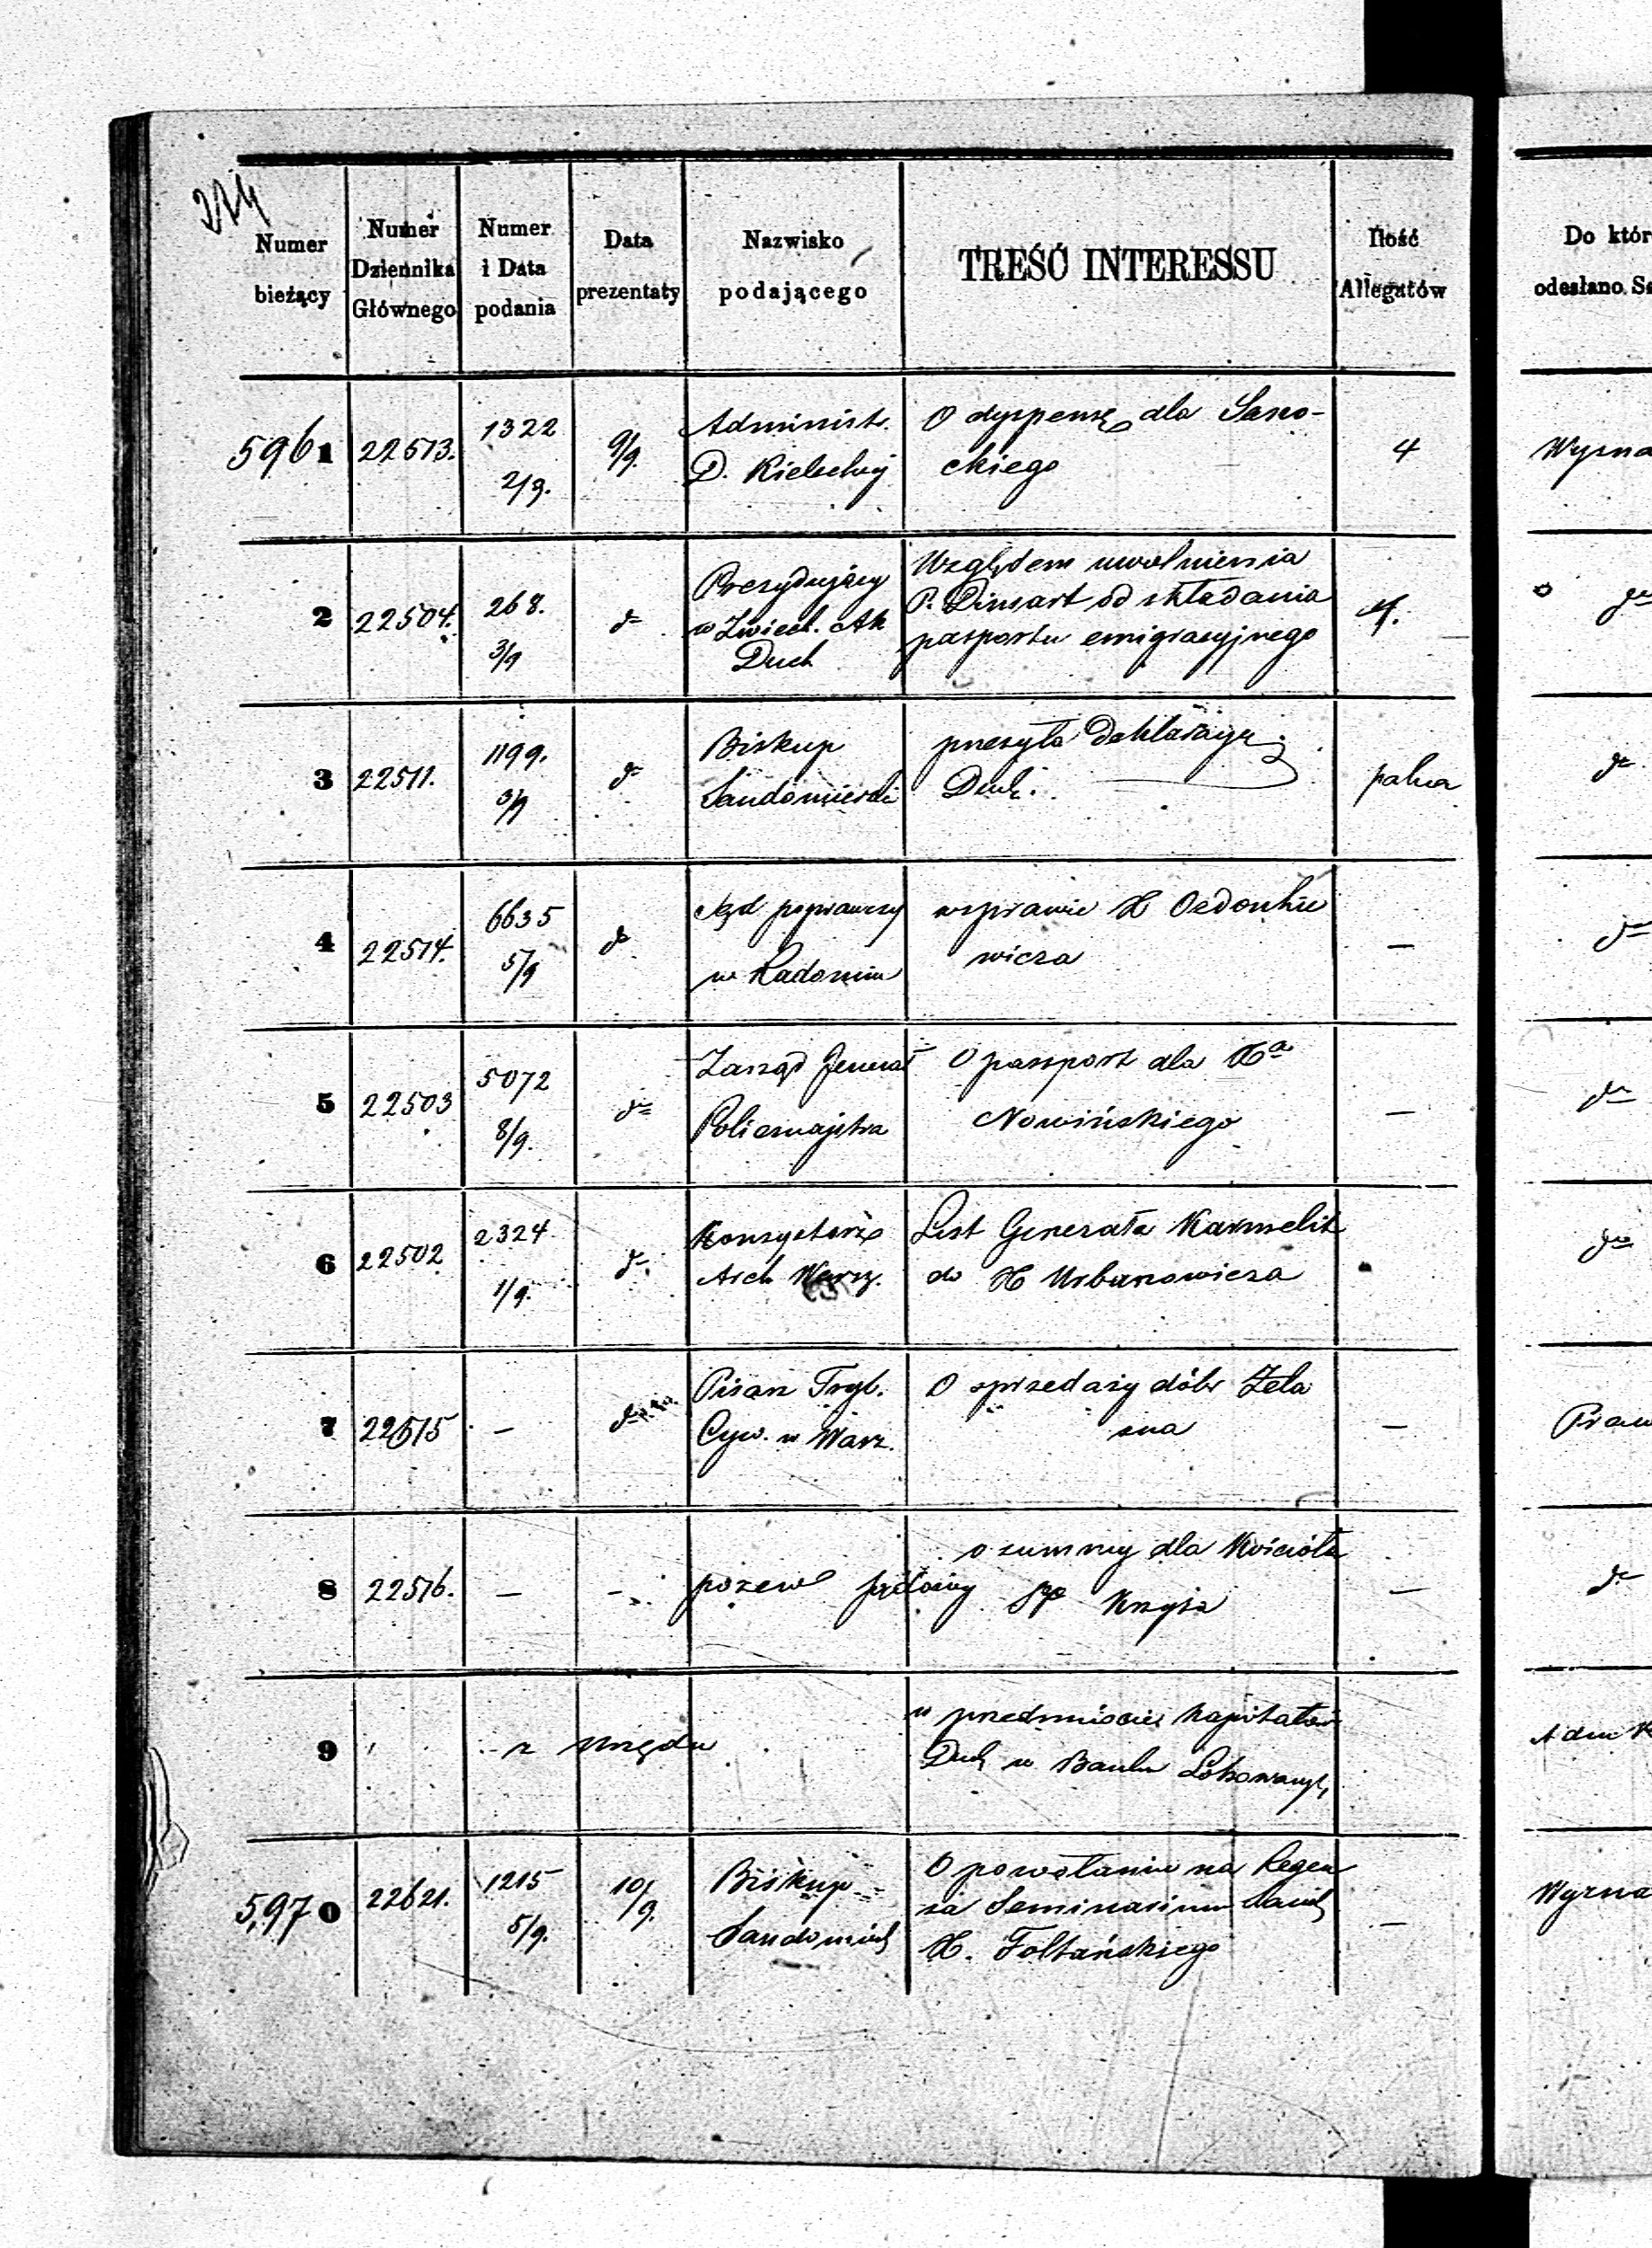 224
Numer
bieżący
Numer
Dziennika
Głównego
Numer
i Data
podania
Data
prezentaty
Nazwisko
podającego
TREŚĆ INTERESSU
Ilość
Allegatów
Do któr
odesłano Se
5961
22513.
1322
2/9.
9/9.
Administr.
D. Kieleckiej
O dyspensę dla Sano-
ckiego
4
Wyzna
2
22504.
268.
3/9
d-
Prezydujący
w Zwierz. Ak
Duch
Względem uwolnienia
P. Dinsart od składania
pasportu emigracyjnego
do
3
22511.
1199.
3/9
d-
Biskup
Sandomierski
przesyła deklaracye
Duch.
paka
do
4
22514.
6635
5/9
do
Sąd poprawczy
w Radomiu
w sprawie X
wicza
—
do
5
22503
5072
8/9.
do
Zarząd Generał
Policmajstra
O passport dla Xa
Nowińskiego
—
do
6
22502
2324
1/9.
d-
Konsystorz
Arch Warsz.
List Generała Karmelit
do X Urbanowicza
do
7
22515
—
do
Pisarz Tryb.
Cyw. w Warz.
O sprzedaży dóbr Żela
zna
—
Praw
8
22516.
—
-
pozew sądowy
o summy dla Kościoła
Sgo Krzyża
—
do
9
z Urzędu
w przedmiocie kapitałów
Duch w Banku Lokowanych
Adm K
5,970
22621.
1215
5/9.
10/9.
Biskup
Sandomier
O powołaniu na Regen
sa Seminarium Sand
X. Foltańskiego
—
Wyzna